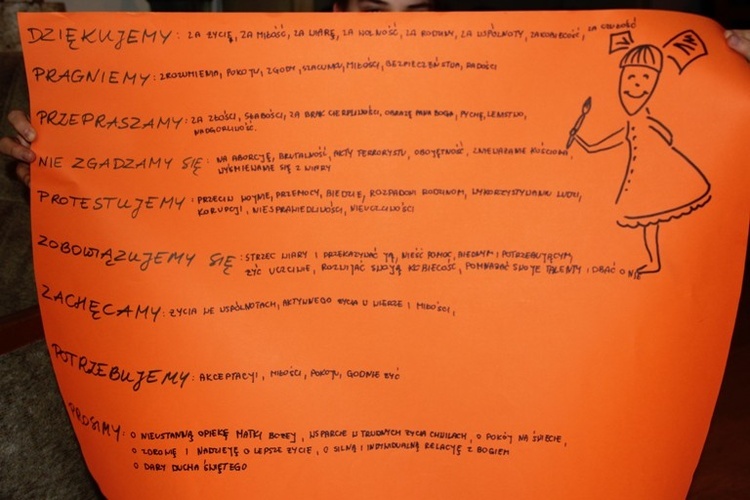 DZIĘKUJEMY: ZA ŻYCIE, ZA MIŁOŚĆ, ZA WIARĘ, ZA WOLNOŚĆ, ZA RODZINY, ZA WSPÓLNOTY, ZA KOBIECOŚĆ, ZA CZUŁOŚĆ
PRAGNIEMY: ZROZUMIENIA, POKOJU, ZGODY, SZACUNKU, MIŁOŚCI, BEZPIECZEŃSTWA, RADOŚCI
PRZEPRASZAMY: ZA ZŁOŚCI, SŁABOŚCI, ZA BRAK CIERPLIWOŚCI, OBRAZĘ PANA BOGA, PYCHĘ, LENISTWO,
NADGORLIWOŚĆ.
NIE ZGADZAMY SIĘ: NA ABORCJĘ, BRUTALNOŚĆ, AKTY TERRORYSTU, OBOJĘTNOŚĆ, KOŚCIOŁA,
WYŚMIEWANIE SIĘ Z WIARY
PROTESTUJEMY: PRZECIW WOJNIE, PRZEMOCY, BIEDZIE, ROZPADOM RODZINOM, WYKORZYSTYWANIU LUDZI,
KORUPCJI, NIESPRAWIEDLIWOŚCI, NIEUCZCIWOŚCI
ZOBOWIĄZUJEMY SIĘ: STRZEC WIARY I PRZEKAZYWAĆ JĄ, NIEŚĆ POMOC, BIEDNYM I POTRZEBUJĄCYM,
ŻYĆ UCZCIWIE, ROZWIJAĆ SWOJĄ KOBIECOŚĆ, POMNAŻAĆ SWOJE TALENTY I DBAĆ O NIE
ZACHĘCAMY: ŻYCIA WE WSPÓLNOTACH, AKTYWNEGO ŻYCIA W WIERZE I MIŁOŚCI,
POTRZEBUJEMY: AKCEPTACJI, MIŁOŚCI, POKOJU, GODNIE ŻYĆ
PROSIMY: O NIEUSTANNĄ OPIEKĘ MATKI BOŻEJ, WSPARCIE W TRUDNYCH ŻYCIA CHWILACH, O POKÓJ NA ŚWIECIE,
O ZDROWIE I NADZIEJĘ O LEPSZE ŻYCIE, O SILNĄ I INDYWIDUALNĄ RELACJĘ Z BOGIEM
O DARY DUCHA ŚWIĘTEGO